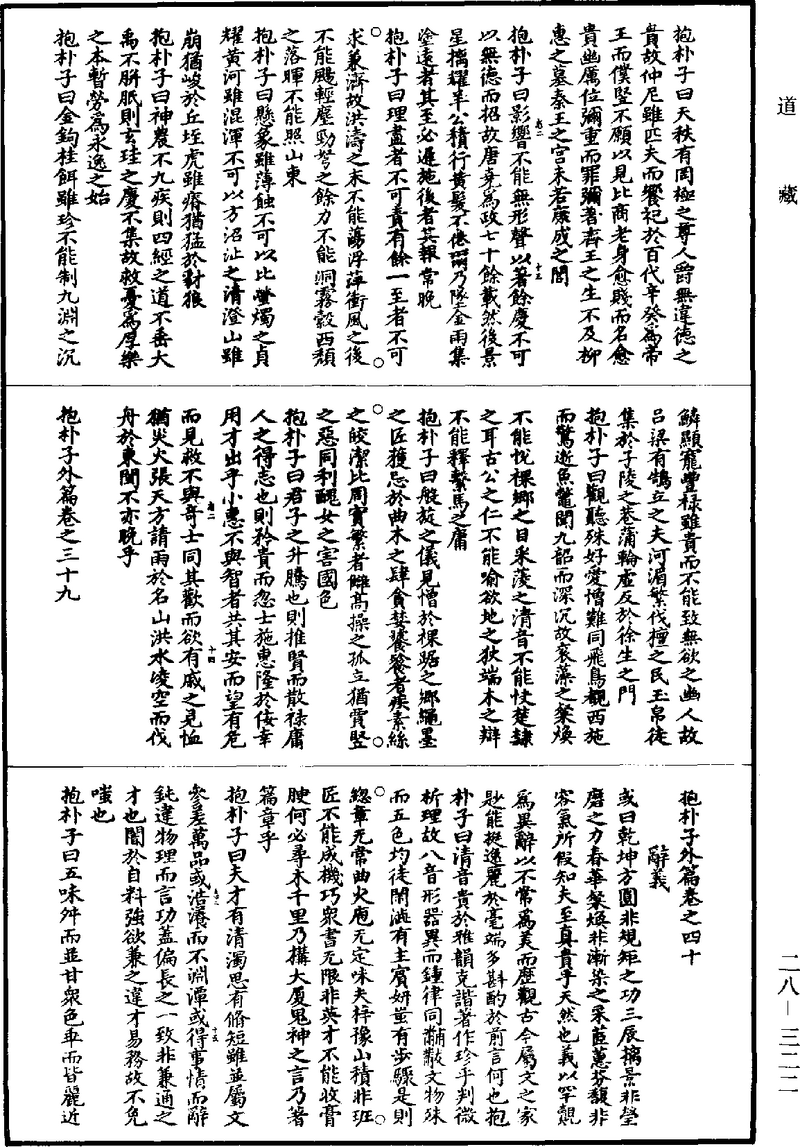 道藏
抱朴子曰天秩有罔極之尊人爵無違德之
貴故仲尼雖匹夫而饗祀於百代辛癸爲帝
王而僕豎不願以見比商老身愈賤而名愈
貴幽厲位彌重而罪彌著齊王之生不及柳
惠之墓秦王之宮未若康成之閭
抱朴子曰影響不能無形聲以著餘慶不可
以無德而招故唐堯爲政七十餘載然後景
星摛耀羊公積行黃髮不倦爾乃墜金雨集
塗遠者其至必遲施後者其報常晚
抱朴子曰理盡者不可責有餘一至者不可
求兼濟故洪濤之末不能蕩浮萍衝風之後
不能颺輕塵勁弩之餘力不能洞霧縠西頹
之落暉不能照山東
抱朴子曰懸象雖薄蝕不可以比螢燭之貞
耀黃河雖混渾不可以方沼沚之清澄山雖
崩猶峻於丘垤虎雖瘠猶猛於豺狼
抱朴子曰神農不九疾則四經之道不垂大
禹不胼胝則玄珪之慶不集故救憂爲厚樂
之本暫勞爲永逸之始
抱朴子曰金鉤桂餌雖珍不能制九淵之沉
鱗顯寵豐祿雖貴而不能致無欲之幽人故
呂梁有鵠立之夫河湄繁伐檀之民玉帛徒
集於子陵之巷蒲輪虛反於徐生之門
抱朴子曰觀聽殊好愛憎難同飛鳥覩西施
而驚逝魚鼈聞九韶而深沉故袞藻之粲煥
不能悅裸鄉之目采菱之清音不能快楚隸
之耳古公之仁不能喻欲地之狄端木之辯
不能釋繫馬之庸
抱朴子曰般旋之儀見憎於裸踞之鄉繩墨
之匠獲忌於曲木之肆貪婪饕餮者疾素絲
之皎潔比周實繁者讎高操之孤立猶賈豎
之惡同利醜女之害國色
抱朴子曰君子之升騰也則推賢而散祿庸
人之得志也則矜貴而忽士施惠隆於佞幸
用才出乎小惠不與智者共其安而望有危
而見救不與奇士同其歡而欲有戚之見恤
猶災火張天方請雨於名山洪水凌空而伐
舟於東閩不亦晚乎
抱朴子外篇卷之三十九
抱朴子外篇卷之四十
辭義
或曰乾坤方圓非規矩之功三辰摛景非瑩
磨之力春華粲煥非漸染之采茝蕙芬馥非
容氣所假知夫至真貴乎天然也義以罕覿
爲異辭以不常爲美而歷觀古今屬文之家
尟能挺逸麗於毫端多斟酌於前言何也抱
朴子曰清音貴於雅韻克諧著作珍乎判微
析理故八音形器異而鍾律同黼黻文物殊
而五色均徒閑澁有主賓妍蚩有步驟是則
緫章无常曲大庖无定味夫梓豫山積非班
匠不能成機巧衆書无限非英才不能收膏
腴何必尋木千里乃構大厦鬼神之言乃著
篇章乎
抱朴子曰夫才有清濁思有脩短雖並屬文
參差萬品或浩瀁而不淵潭或得事情而辭
鈍違物理而言功蓋偏長之一致非兼通之
才也闇於自料強欲兼之違才易務故不免
嗤也
抱朴子曰五味舛而並甘衆色乖而皆麗近
二八—三二二